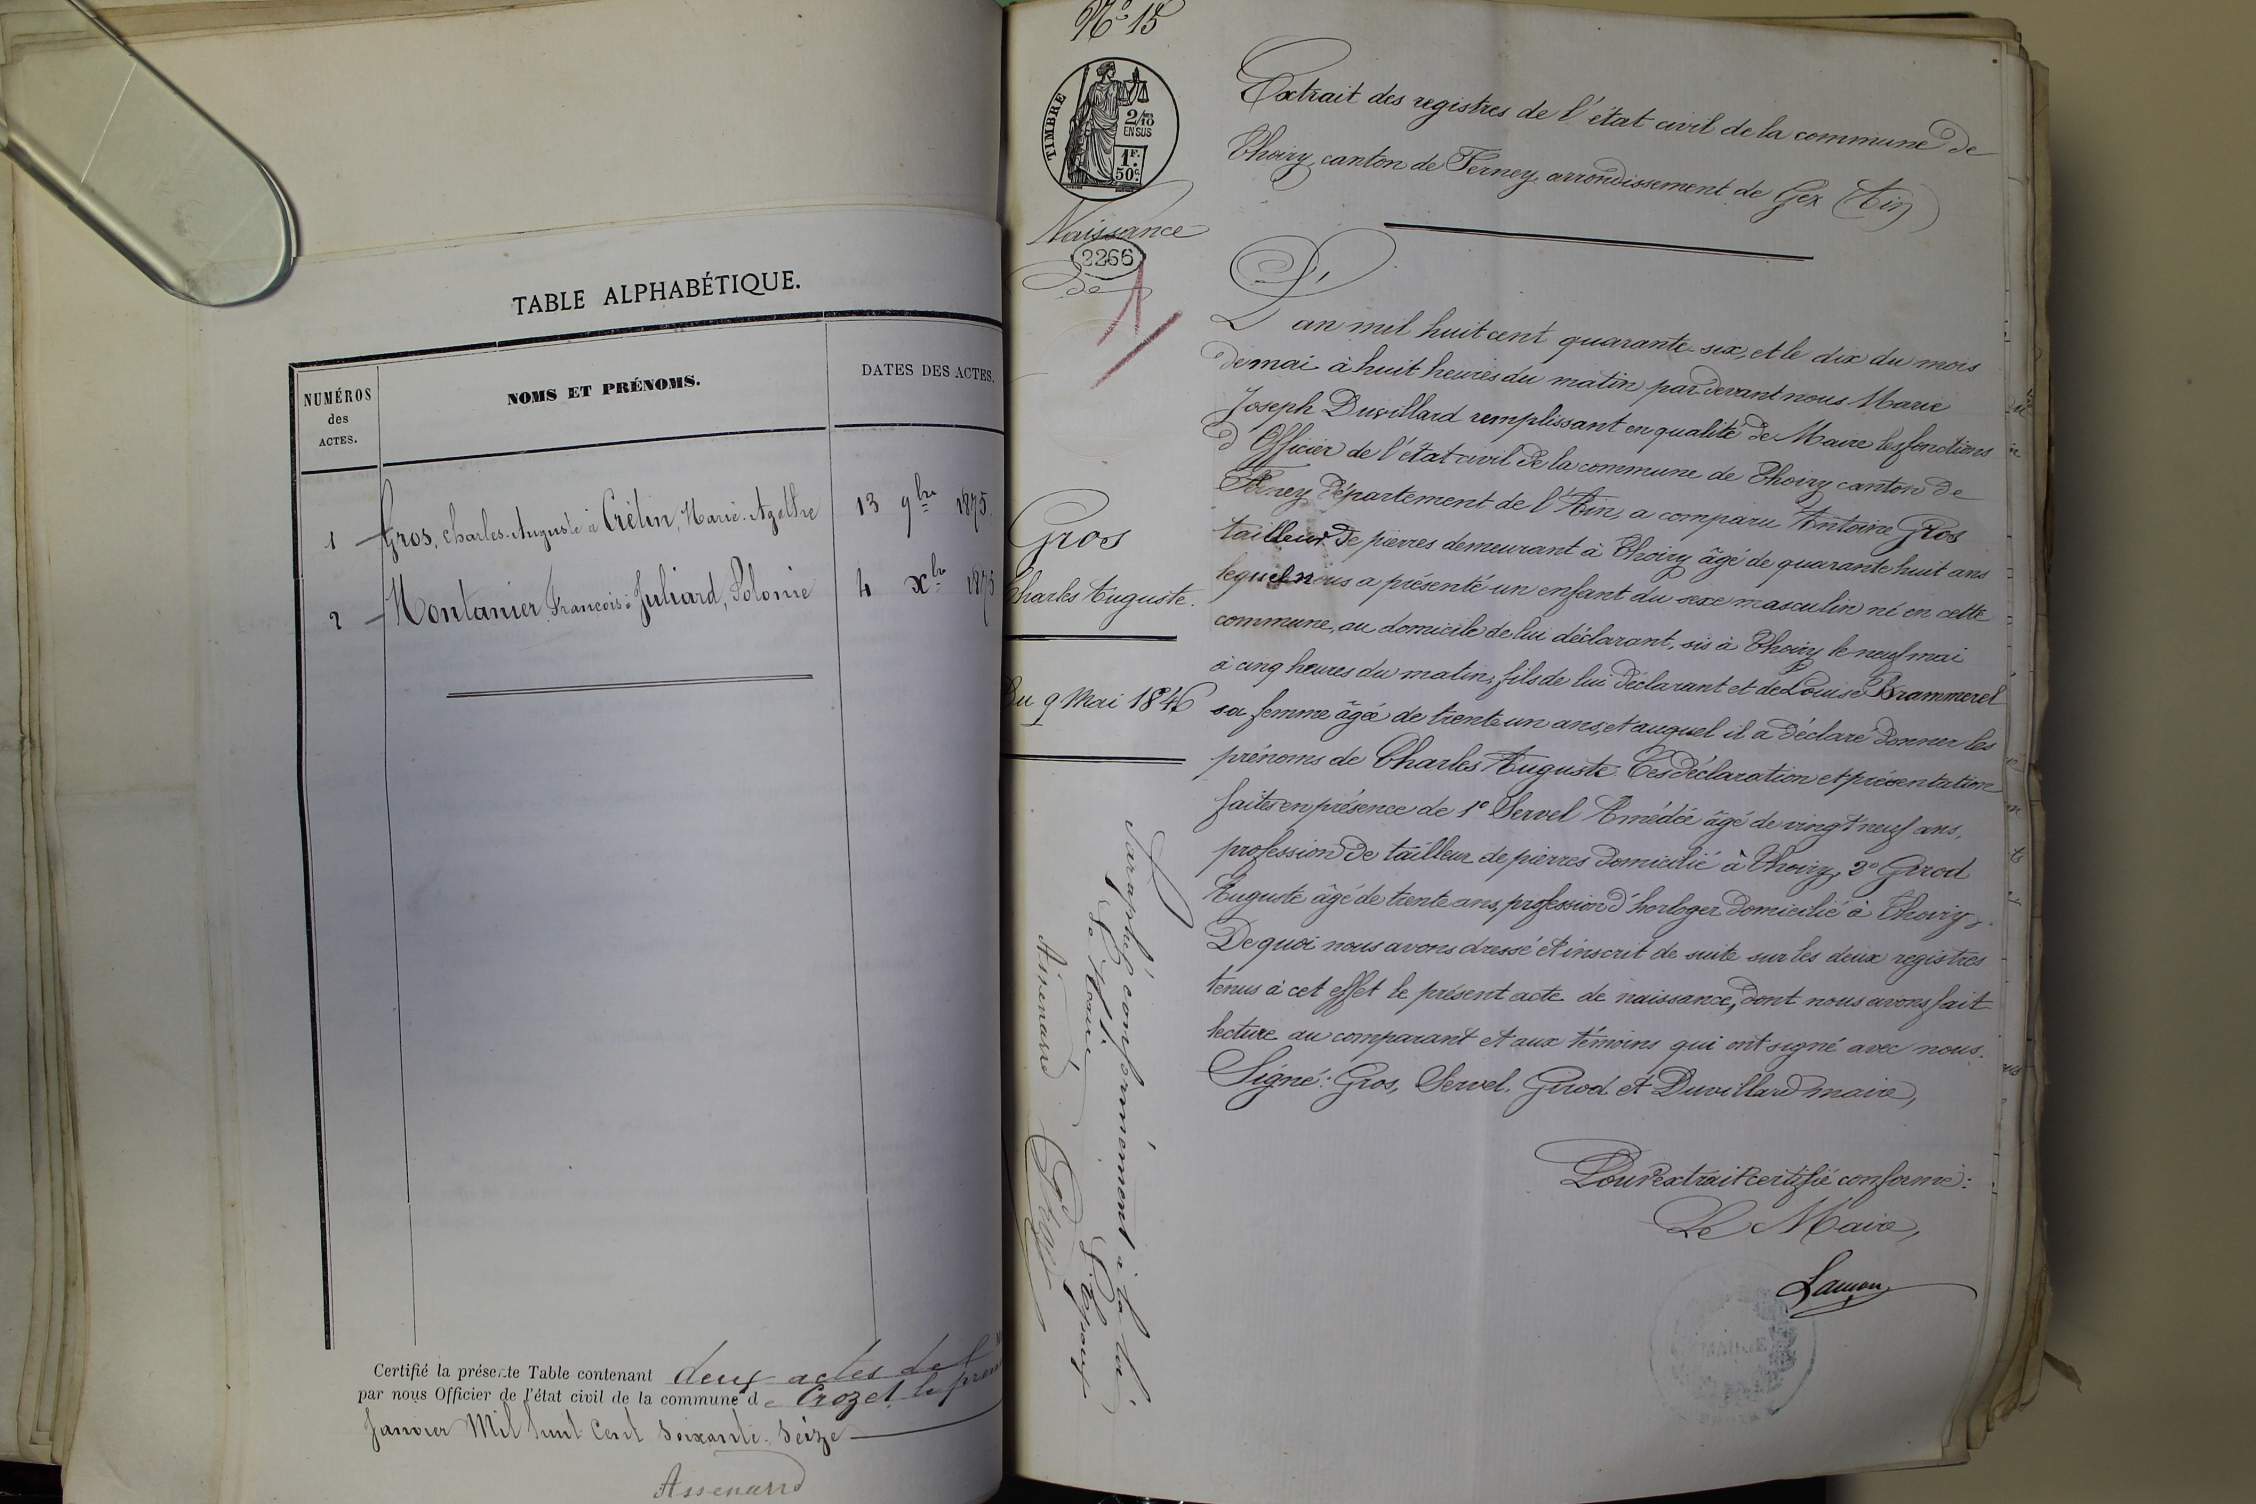 TABLE ALPHABÉTIQUE.
NUMÉROS
des
ACTES.
NOMS ET PRÉNOMS.
DATES DES ACTES.
1 Gros, Charles-Auguste à Crétin, Marie-Agathe 13 9bre 1875.
2 Montanier, François à Juliard, Polonie 4 xbre 1875
Certifié la présente Table contenant deux actes de
par nous Officier de l'état civil de la commune de Crozet, le
Janvier Mil huit Cent Soixante Seize
Assenard
N° 15
TIMBRE
2/10
EN SUS
1F.
50c.
Naissance
2266
de
1
Gros
Charles Auguste.
Du 9 Mai 1846
Paraphé conformément à la loi
le Maire
Assenard
Extrait des registres de l'état civil de la commune de
Thoiry canton de Ferney arrondissement de Gex (Ain)
L'an mil huit cent quarante-six, et le dix du mois
de mai à huit heures du matin par devant nous Marie
Joseph Duvillard remplissant en qualité de Maire les fonctions
d'Officier de l'état civil de la commune de Thoiry canton de
Ferney département de l'Ain, a comparu Antoine Gros
tailleur de pierres demeurant à Thoiry âgé de quarante huit ans
lequel nous a présenté un enfant du sexe masculin né en cette
commune, au domicile de lui déclarant, sis à Thoiry le neuf mai
à cinq heures du matin, fils de lui déclarant et de Louise Brammerel
sa femme âgée de trente un ans, et auquel il a déclaré donner les
prénoms de Charles Auguste. Ces déclaration et présentation
faites en présence de 1° Servel Amédée âgé de vingt neuf ans,
profession de tailleur de pierres domicilié à Thoiry, 2° Girod
Auguste âgé de trente ans, profession d'horloger domicilié à Thoiry.
De quoi nous avons dressé et inscrit de suite sur les deux registres
tenus à cet effet le présent acte de naissance, dont nous avons fait
lecture au comparant et aux témoins qui ont signé avec nous.
Signé: Gros, Servel, Girod et Duvillard maire,
Pour extrait certifié conforme:
Le Maire,